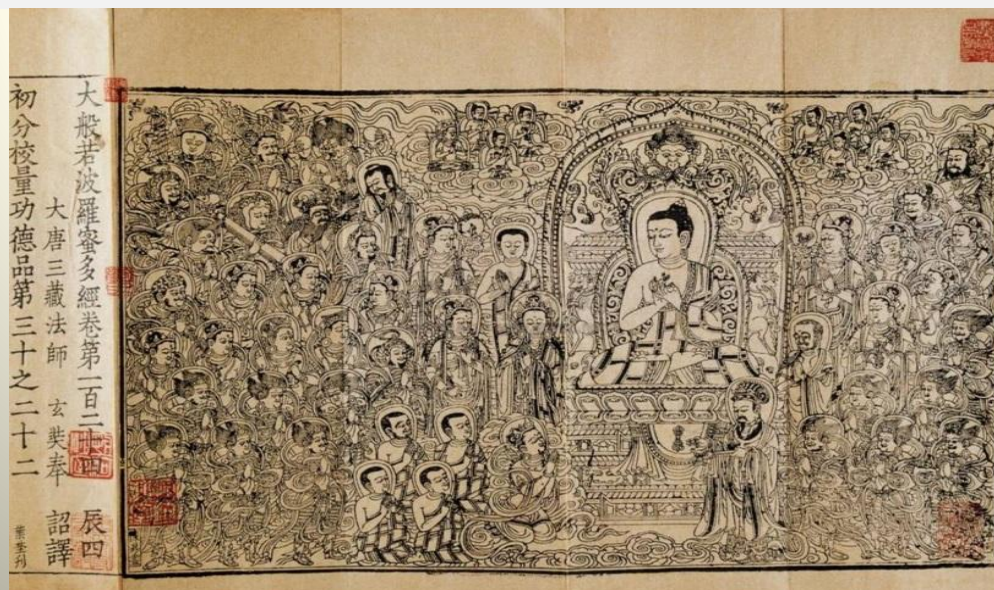 大般若波羅蜜多經卷第一百二十四 辰四
大唐三藏法師 玄奘奉 詔譯
初分校量功德品第三十之二十二